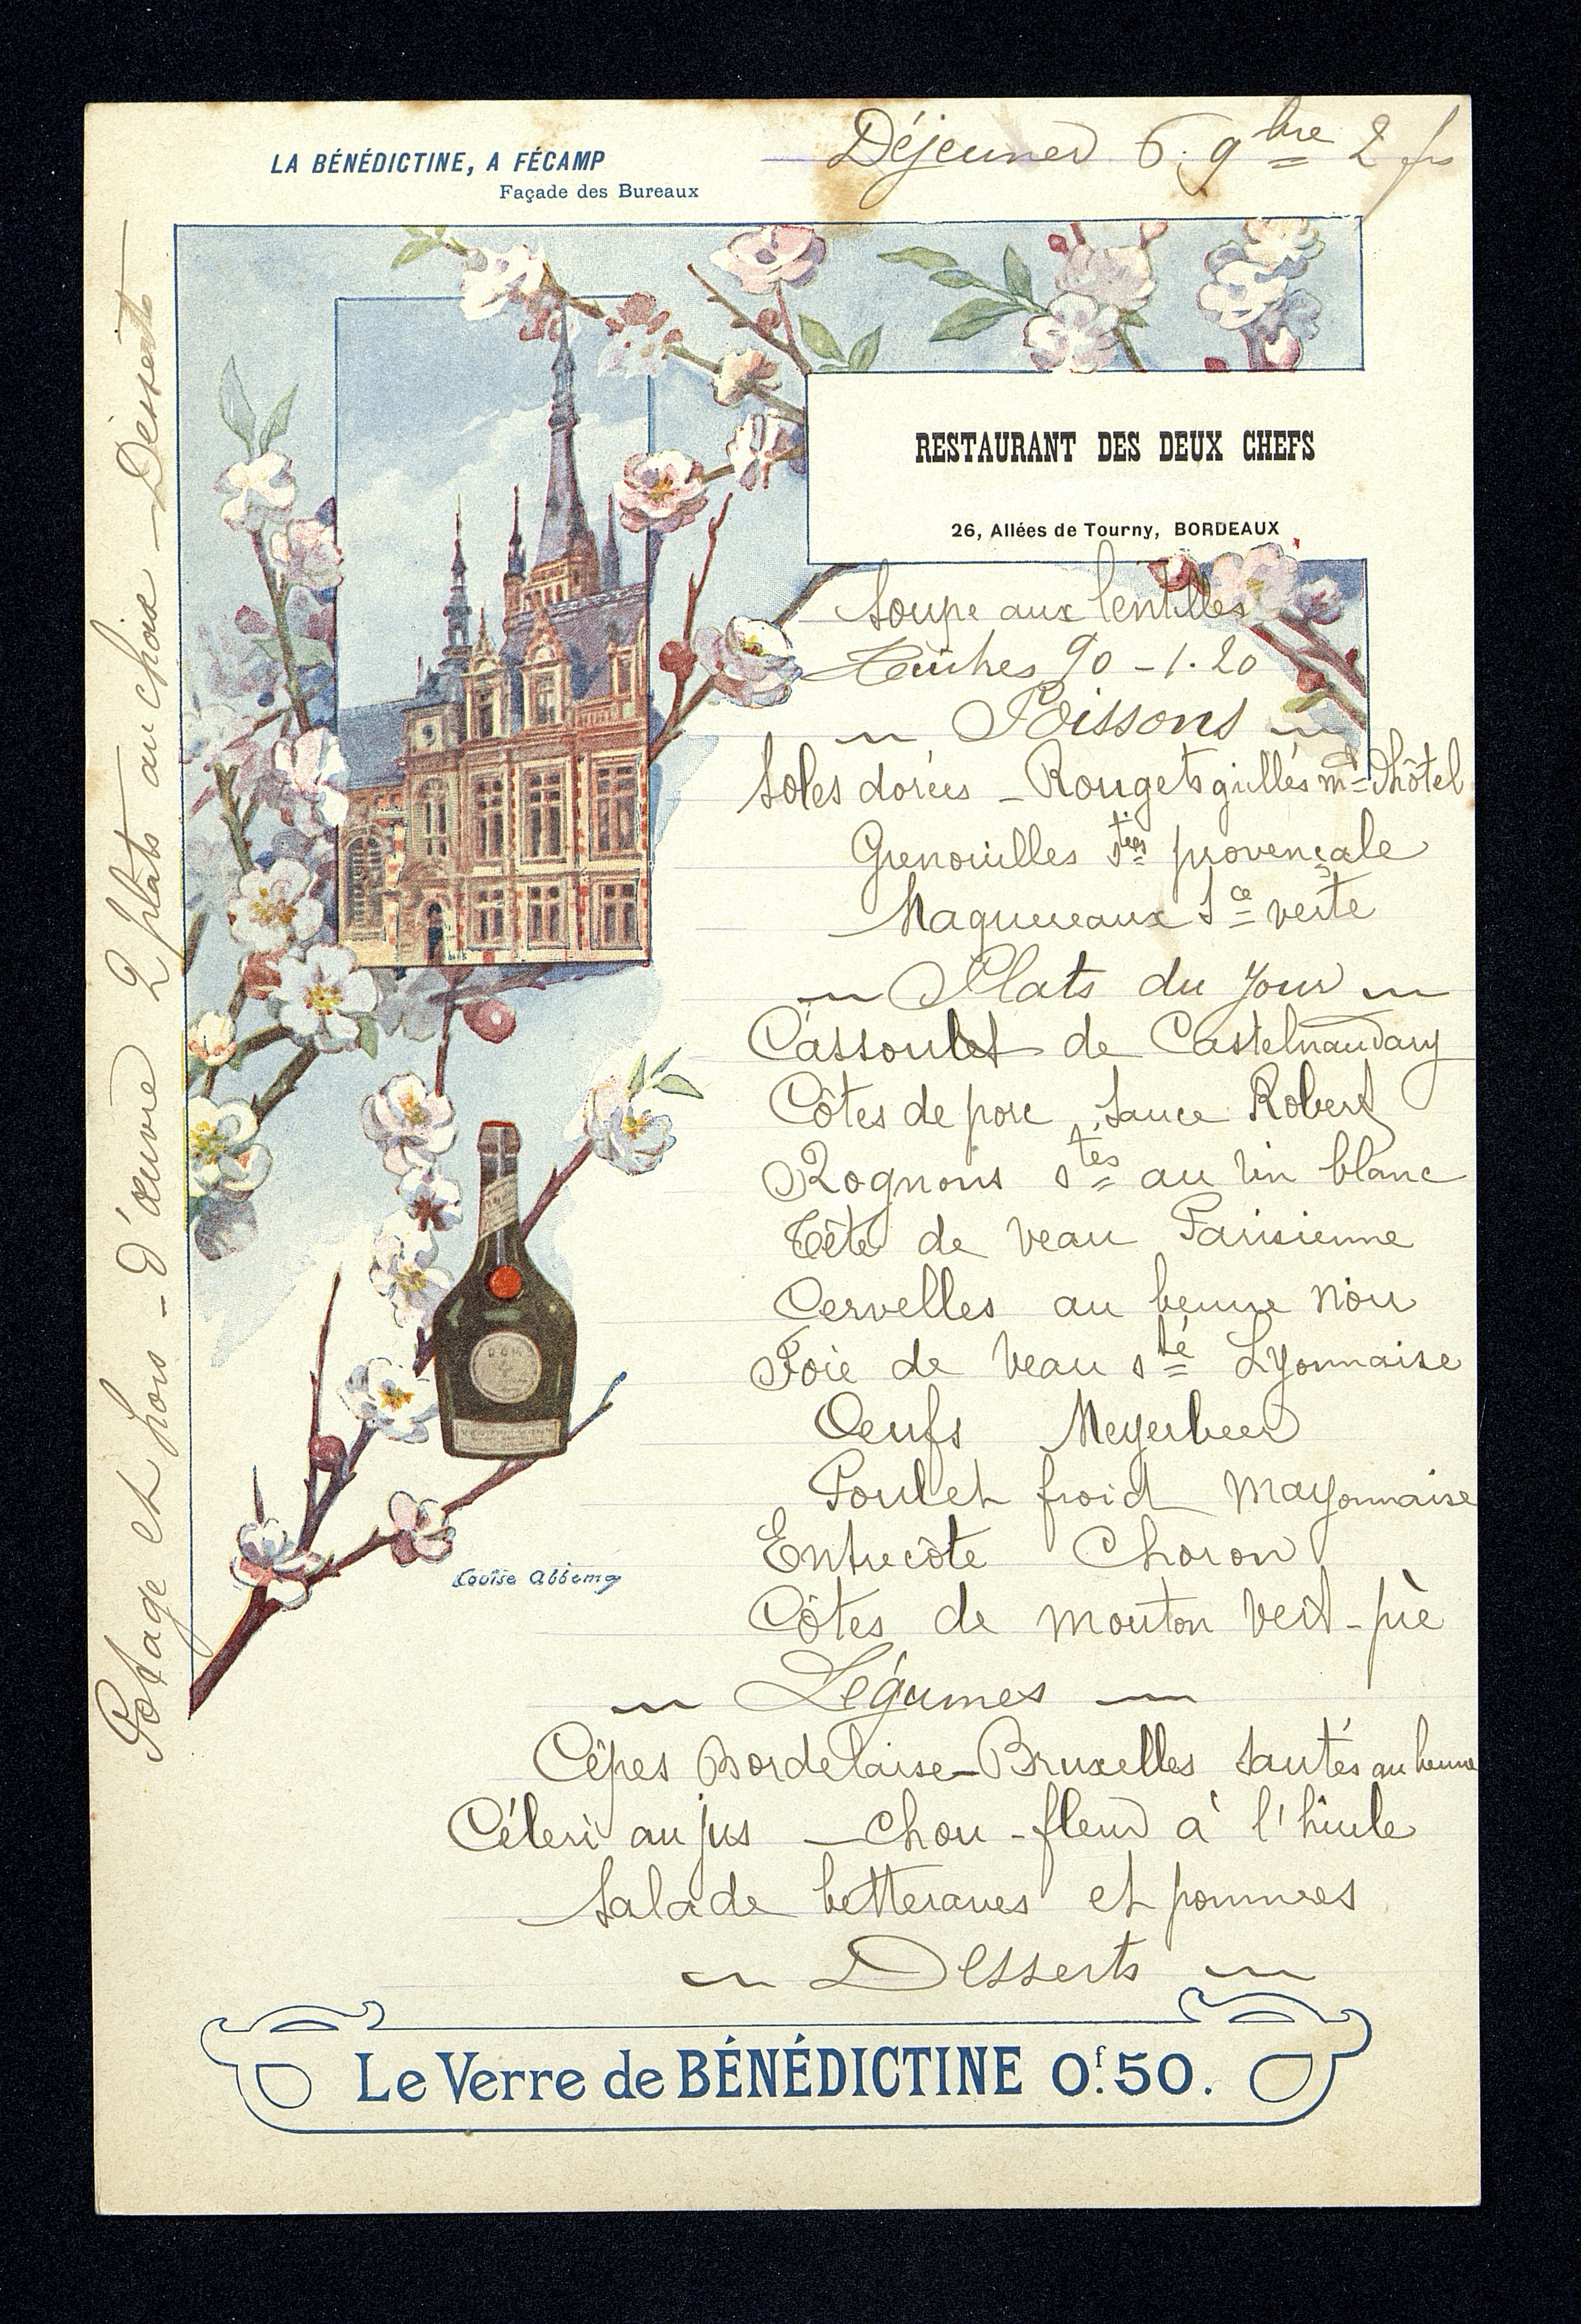 LA BÉNÉDICTINE, A FÉCAMP
Façade des Bureaux
Déjeuner 6. 9bre 2 frs
RESTAURANT DES DEUX CHEFS
26, Allées de Tourny, BORDEAUX
Soupe aux lentilles
Huîtres 90 - 1.20
Poissons
Soles dorées - Rougets grillés md d'hôtel
Grenouilles stées provençale
Maquereaux Sce verte
Plats du Jour
Cassoulet de Castelnaudary
Côtes de porc, Sauce Robert
Rognons stés au vin blanc
Tête de veau Parisienne
Cervelles au beurre noir
Foie de veau sté Lyonnaise
Oeufs Meyerbeer
Poulet froid Mayonnaise
Entrecôte Choron
Côtes de mouton vert-pré
Légumes
Cêpes Bordelaise - Bruxelles Sautés au beurre
Céleri au jus - Chou-fleur à l'huile
Salade betteraves et pommes
Desserts
Le Verre de BÉNÉDICTINE 0f.50.
Potage et hors-d'œuvre 2 plats au choix - Desserts
Louise Abbema
DOM